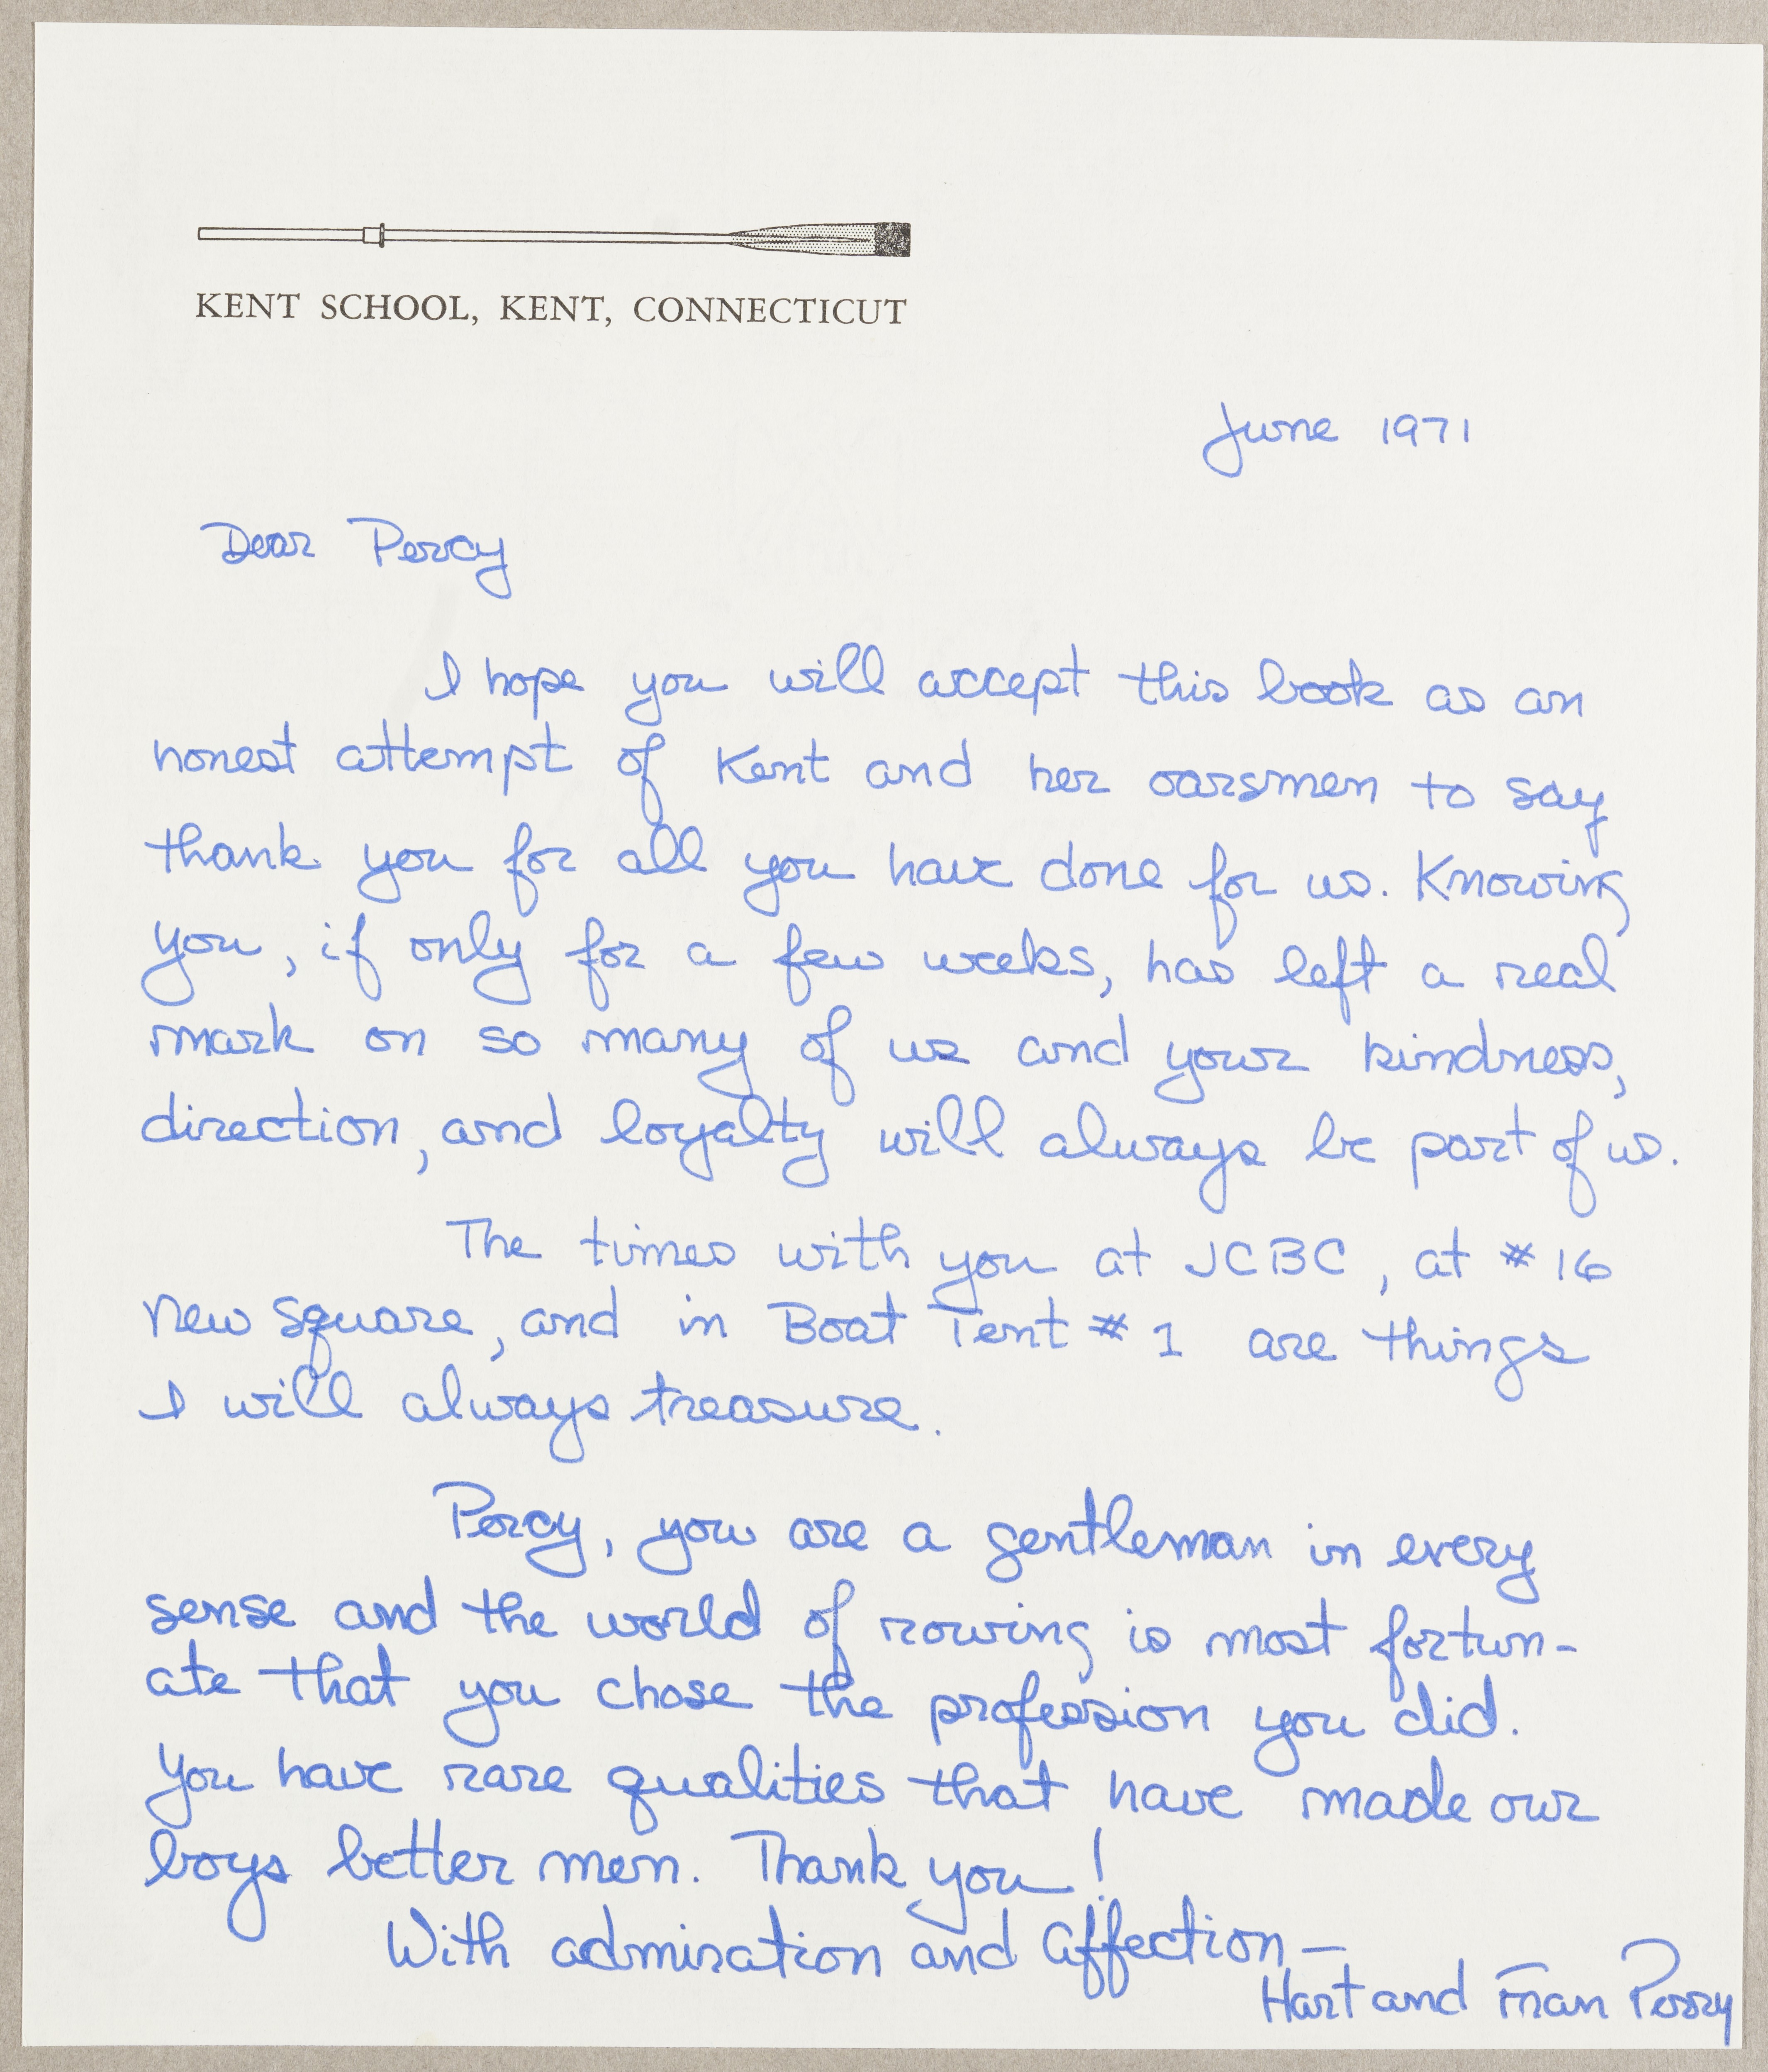 KENT SCHOOL, KENT, CONNECTICUT
June 1971
Dear Percy
I hope you will accept this book as an
honest attempt of Kent and her oarsmen to say
thank you for all you have done for us. Knowing
you, if only for a few weeks, has left a real
mark on so many of us and your kindness,
direction, and loyalty will always be part of us.
The times with you at JCBC, at #16
New Square, and in Boat Tent #1 are things
I will always treasure.
Percy, you are a gentleman in every
sense and the world of rowing is most fortun-
ate that you chose the profession you did.
You have rare qualities that have made our
boys better men. Thank you!
With admiration and affection—
Hart and Fran Perry